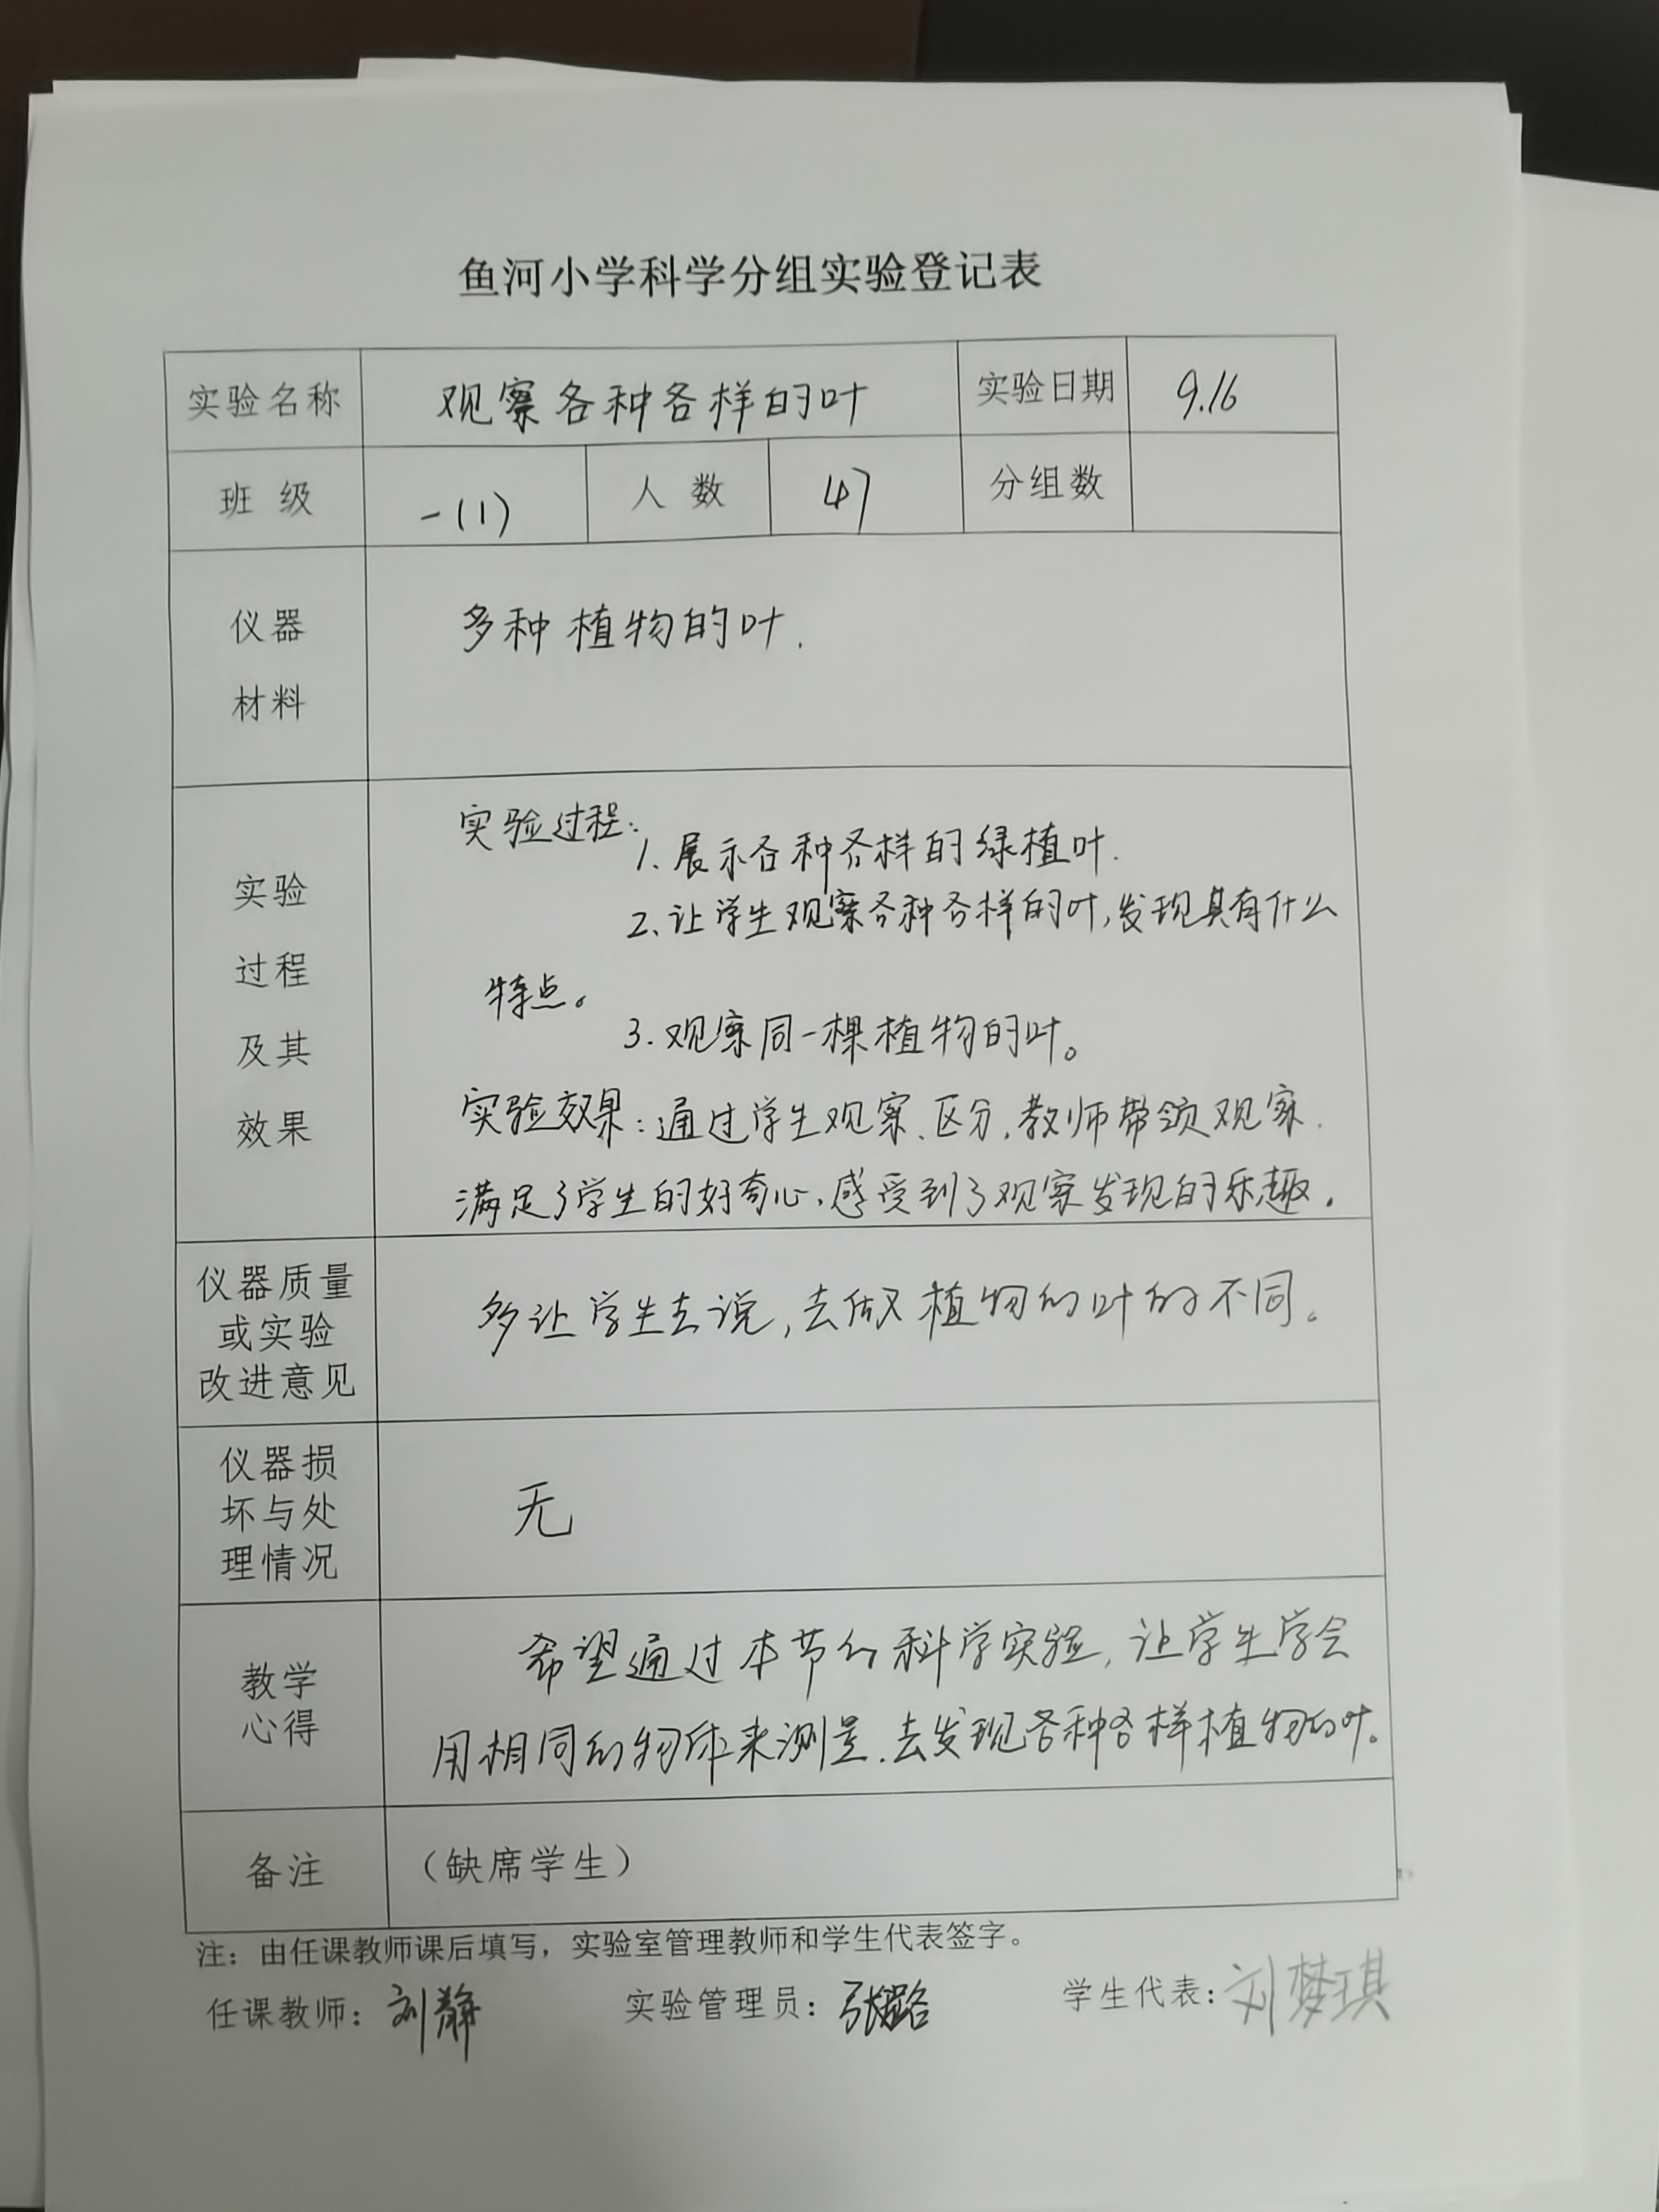 鱼河小学科学分组实验登记表
实验名称 观察各种各样的叶 实验日期 9.16
班 级 一(1) 人 数 47 分组数
仪器
材料
多种植物的叶.
实验
过程
及其
效果
实验过程:
1、展示各种各样的绿植叶.
2、让学生观察各种各样的叶,发现具有什么
特点。
3.观察同一棵植物的叶。
实验效果:通过学生观察、区分,教师带领观察.
满足了学生的好奇心,感受到了观察发现的乐趣.
仪器质量
或实验
改进意见
多让学生去说,去做植物的叶的不同。
仪器损
坏与处
理情况
无
教学
心得
希望通过本节的科学实验,让学生学会
用相同的物体来测量.去发现各种各样植物的叶。
备注 (缺席学生)
注:由任课教师课后填写,实验室管理教师和学生代表签字。
任课教师:刘静 实验管理员:张 学生代表:刘梦琪